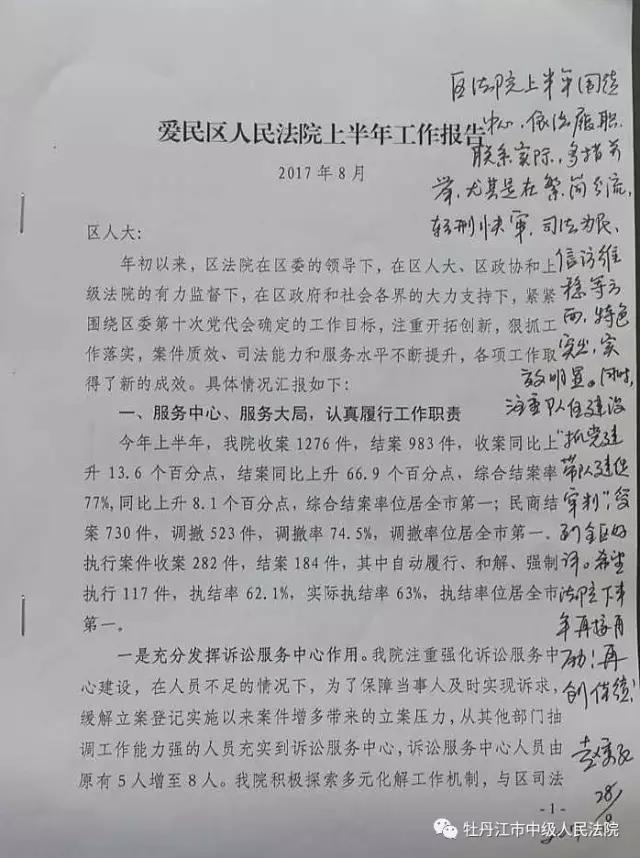 爱民区人民法院上半年工作报告
2017年8月
区人大：
年初以来，区法院在区委的领导下，在区人大、区政协和上
级法院的有力监督下，在区政府和社会各界的大力支持下，紧紧
围绕区委第十次党代会确定的工作目标，注重开拓创新，狠抓工
作落实，案件质效、司法能力和服务水平不断提升，各项工作取
得了新的成效。具体情况汇报如下：
一、服务中心、服务大局，认真履行工作职责
今年上半年，我院收案1276件，结案983件，收案同比上
升13.6个百分点，结案同比上升66.9个百分点，综合结案率
77%,同比上升8.1个百分点，综合结案率位居全市第一；民商结
案730件，调撤523件，调撤率74.5%，调撤率位居全市第一。
执行案件收案282件，结案184件，其中自动履行、和解、强制
执行117件，执结率62.1%，实际执结率63%，执结率位居全市
第一。
一是充分发挥诉讼服务中心作用。我院注重强化诉讼服务中
心建设，在人员不足的情况下，为了保障当事人及时实现诉求，
缓解立案登记实施以来案件增多带来的立案压力，从其他部门抽
调工作能力强的人员充实到诉讼服务中心，诉讼服务中心人员由
原有5人增至8人。我院积极探索多元化解工作机制，与区司法
- 1 -
区法院上半年围绕
中心，依法履职，
联系实际，多措并
举，尤其是在繁简分流，
轻刑快审，司法为民、
信访维
稳等方
面，特色
突出，实
效明显。同时，
注重队伍建设
"抓党建
带队建促
审判"，受
到全区好
评。希望
法院下半
年再接再
励！再
创佳绩！
28/8
牡丹江市中级人民法院